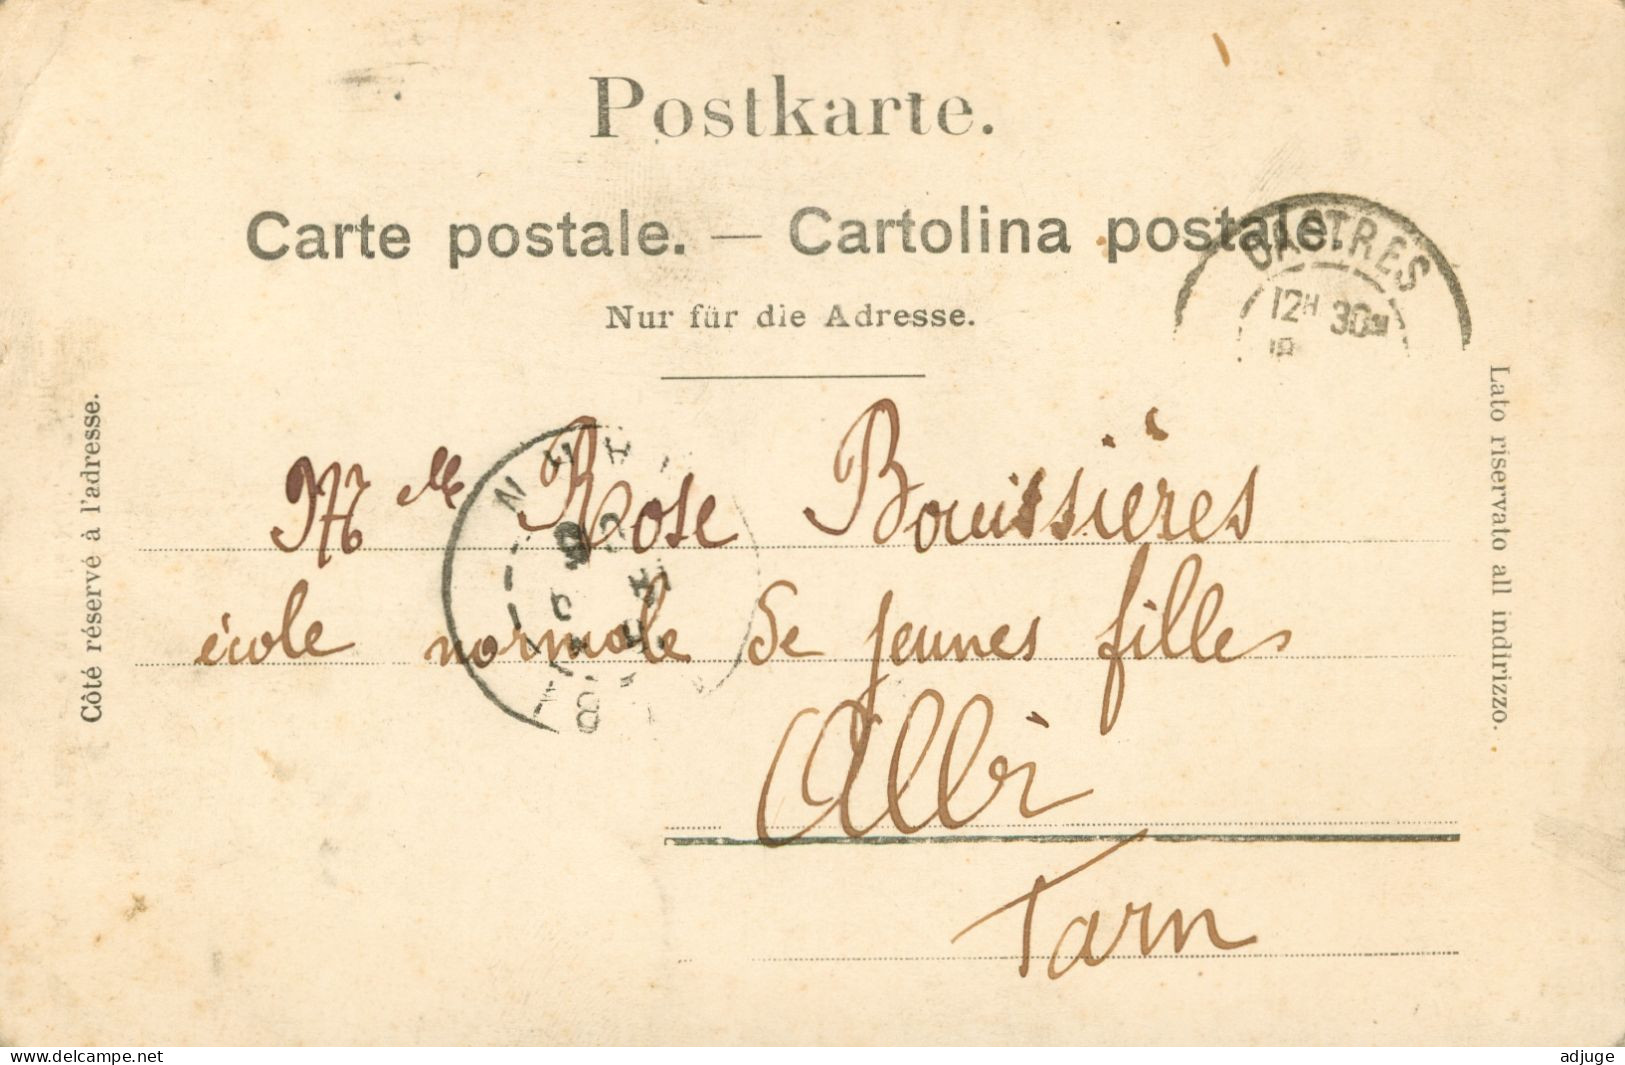 Postkarte.
Carte postale. — Cartolina postale.
Nur für die Adresse.
Côté réservé à l'adresse.
Lato riservato all indirizzo.
CASTRES
12H 30M
Mlle Rose Bouissières
école normale de jeunes filles
Albi
Tarn
www.delcampe.net
adjuge